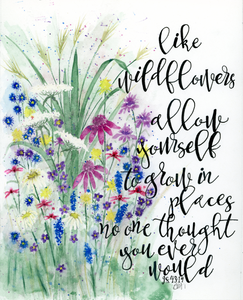 like
wildflowers
allow
yourself
to grow in
places
no one thought
you ever
would